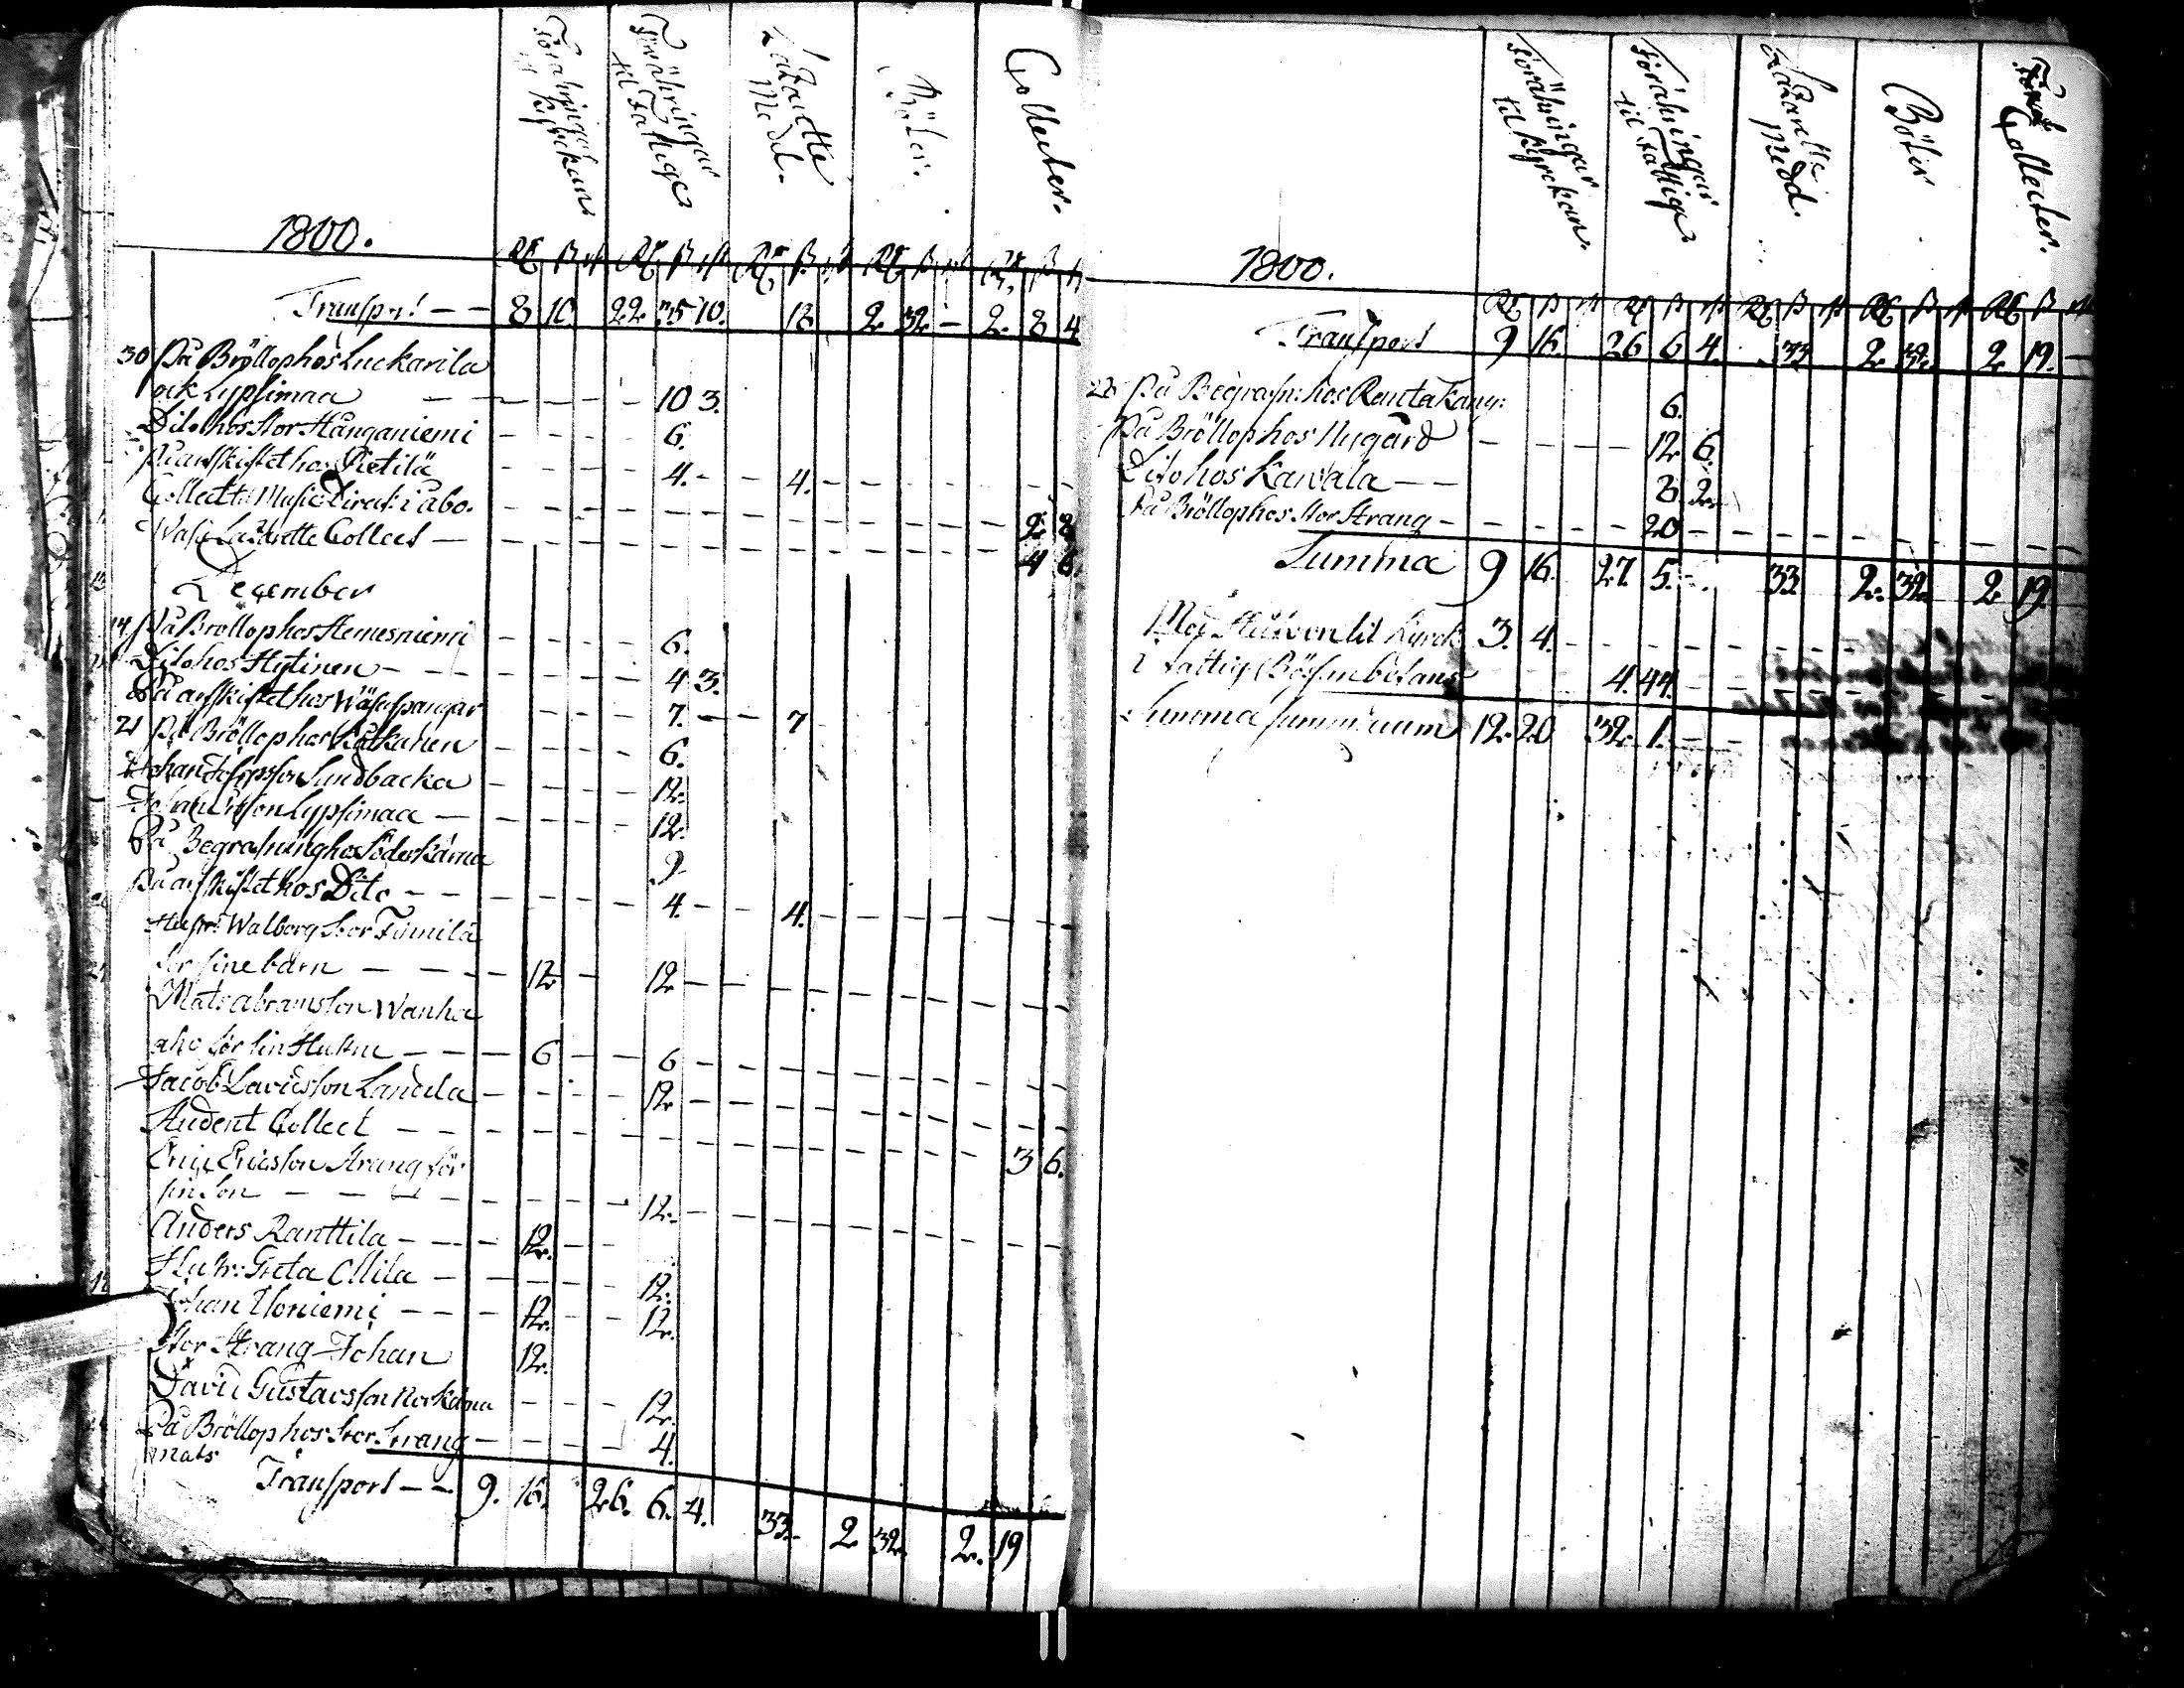 Förähringar til Kyrckan
Förähringar til Fattige
Lazarette Medel.
Böter.
Collecter.
1800.
Rd ß rst Rd ß rst Rd ß rst Rd ß rst Rd ß r
Transport — — 8 10. 22. 35 10. 18 2. 32 — 2. 8 4
30 På Bröllop hos Luckarila
och Lypsimaa — — — — — 10 3.
Dito hos Stor Hanganiemi — — — — 6.
På arfskiftet hos Pietilä — — — — 4. — — 4. — — — — — —
Collect til Music Direct: i Åbo. — — — — — — — — — — 2. 8
Wasa Lazarette Collect — — — — — — — — — — — 4 6.
December
14 På Bröllop hos Hemesniemi — — — — 6.
Dito hos Hytinen — — — — — — 4 3.
På arfskiftet hos Wäster — — — — 7. — — 7
21 På Bröllop hos Kåtkanen — — — — 6.
Johan Josepsson Sandbacka — — — — 12.
Johan Lypsimaa — — — — — 12.
På Begrafning hos Söderkårna 9
På arfskiftet hos Dito — — — — — — 4. — — 4. — — — — — —
Hustr: Walborg Stor Tumila
för sine barn — — — — 12 — 12 — — — — — — — —
Mats Abramsson Wanha
aho för sin Hustru — — — 6 — — 6 — — — — — — — —
Jacob Davidsson Landela — — — — 12 — — — — — — — —
Student Collect — — — — — — — — — — — — 3 6.
Eric Ericsson Strang för
sin Son — — — — — — — — 12. — — — — — — — —
Anders Ranttila — — — — 12. — —
Hustr: Greta Ollila — — — — — 12.
Johan Uoniemi — — — 12. — — 12.
Stor Strang Johan 12.
David Gustavsson Norkårna — — — 12.
På Bröllop hos Stor Strang — — — — — 4.
Mats
Transport — — 9. 16. 26. 6. 4. 33. 2 32. 2. 19
Förähringar til Kyrckan.
Förähringar til Fattige
Lazarette Medd.
Böter
Collecter.
1800.
Rd ß rst Rd ß rst Rd ß rst Rd ß rst Rd ß rst
Transport 9 16. 26 6 4. 33 2. 32. 2 19. —
På Begrafn: hos Rautakang: 6.
På Bröllop hos Nygård — — — — 12 6.
Dito hos Kawala — — 8 2.
På Bröllop hos Stor Strang — — — — — 20 — — — — — — — — — —
Summa 9 16. 27. 5. — . 33 2. 32. 2 19.
Med Håfwen til Kyrck: 3. 4. — — — — — — — —
i Fattig Bössan befans 4. 44. — — — — — —
Summa summarum 12. 20 32. 1. — —